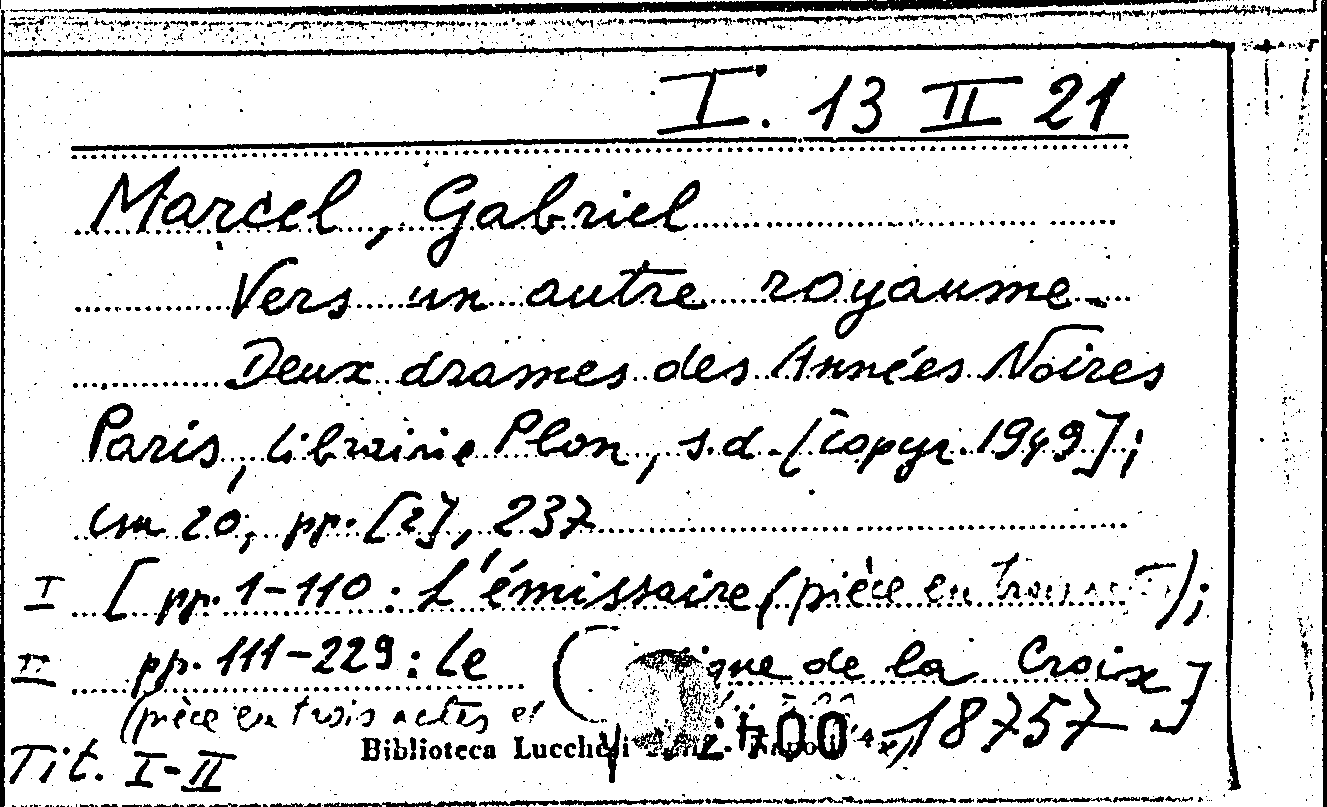 I. 13 II 21
Marcel, Gabriel
Vers un autre royaume-
Deux drames des Années Noires
Paris, Librairie Plon, s.d. [copyr. 1949];
cm 20, pp. [2], 237
I [pp. 1-110: L'émissaire (pièce en trois);
II pp. 111-229: Le de la Croix]
(pièce en trois actes et
Biblioteca 18757
Tit. I-II